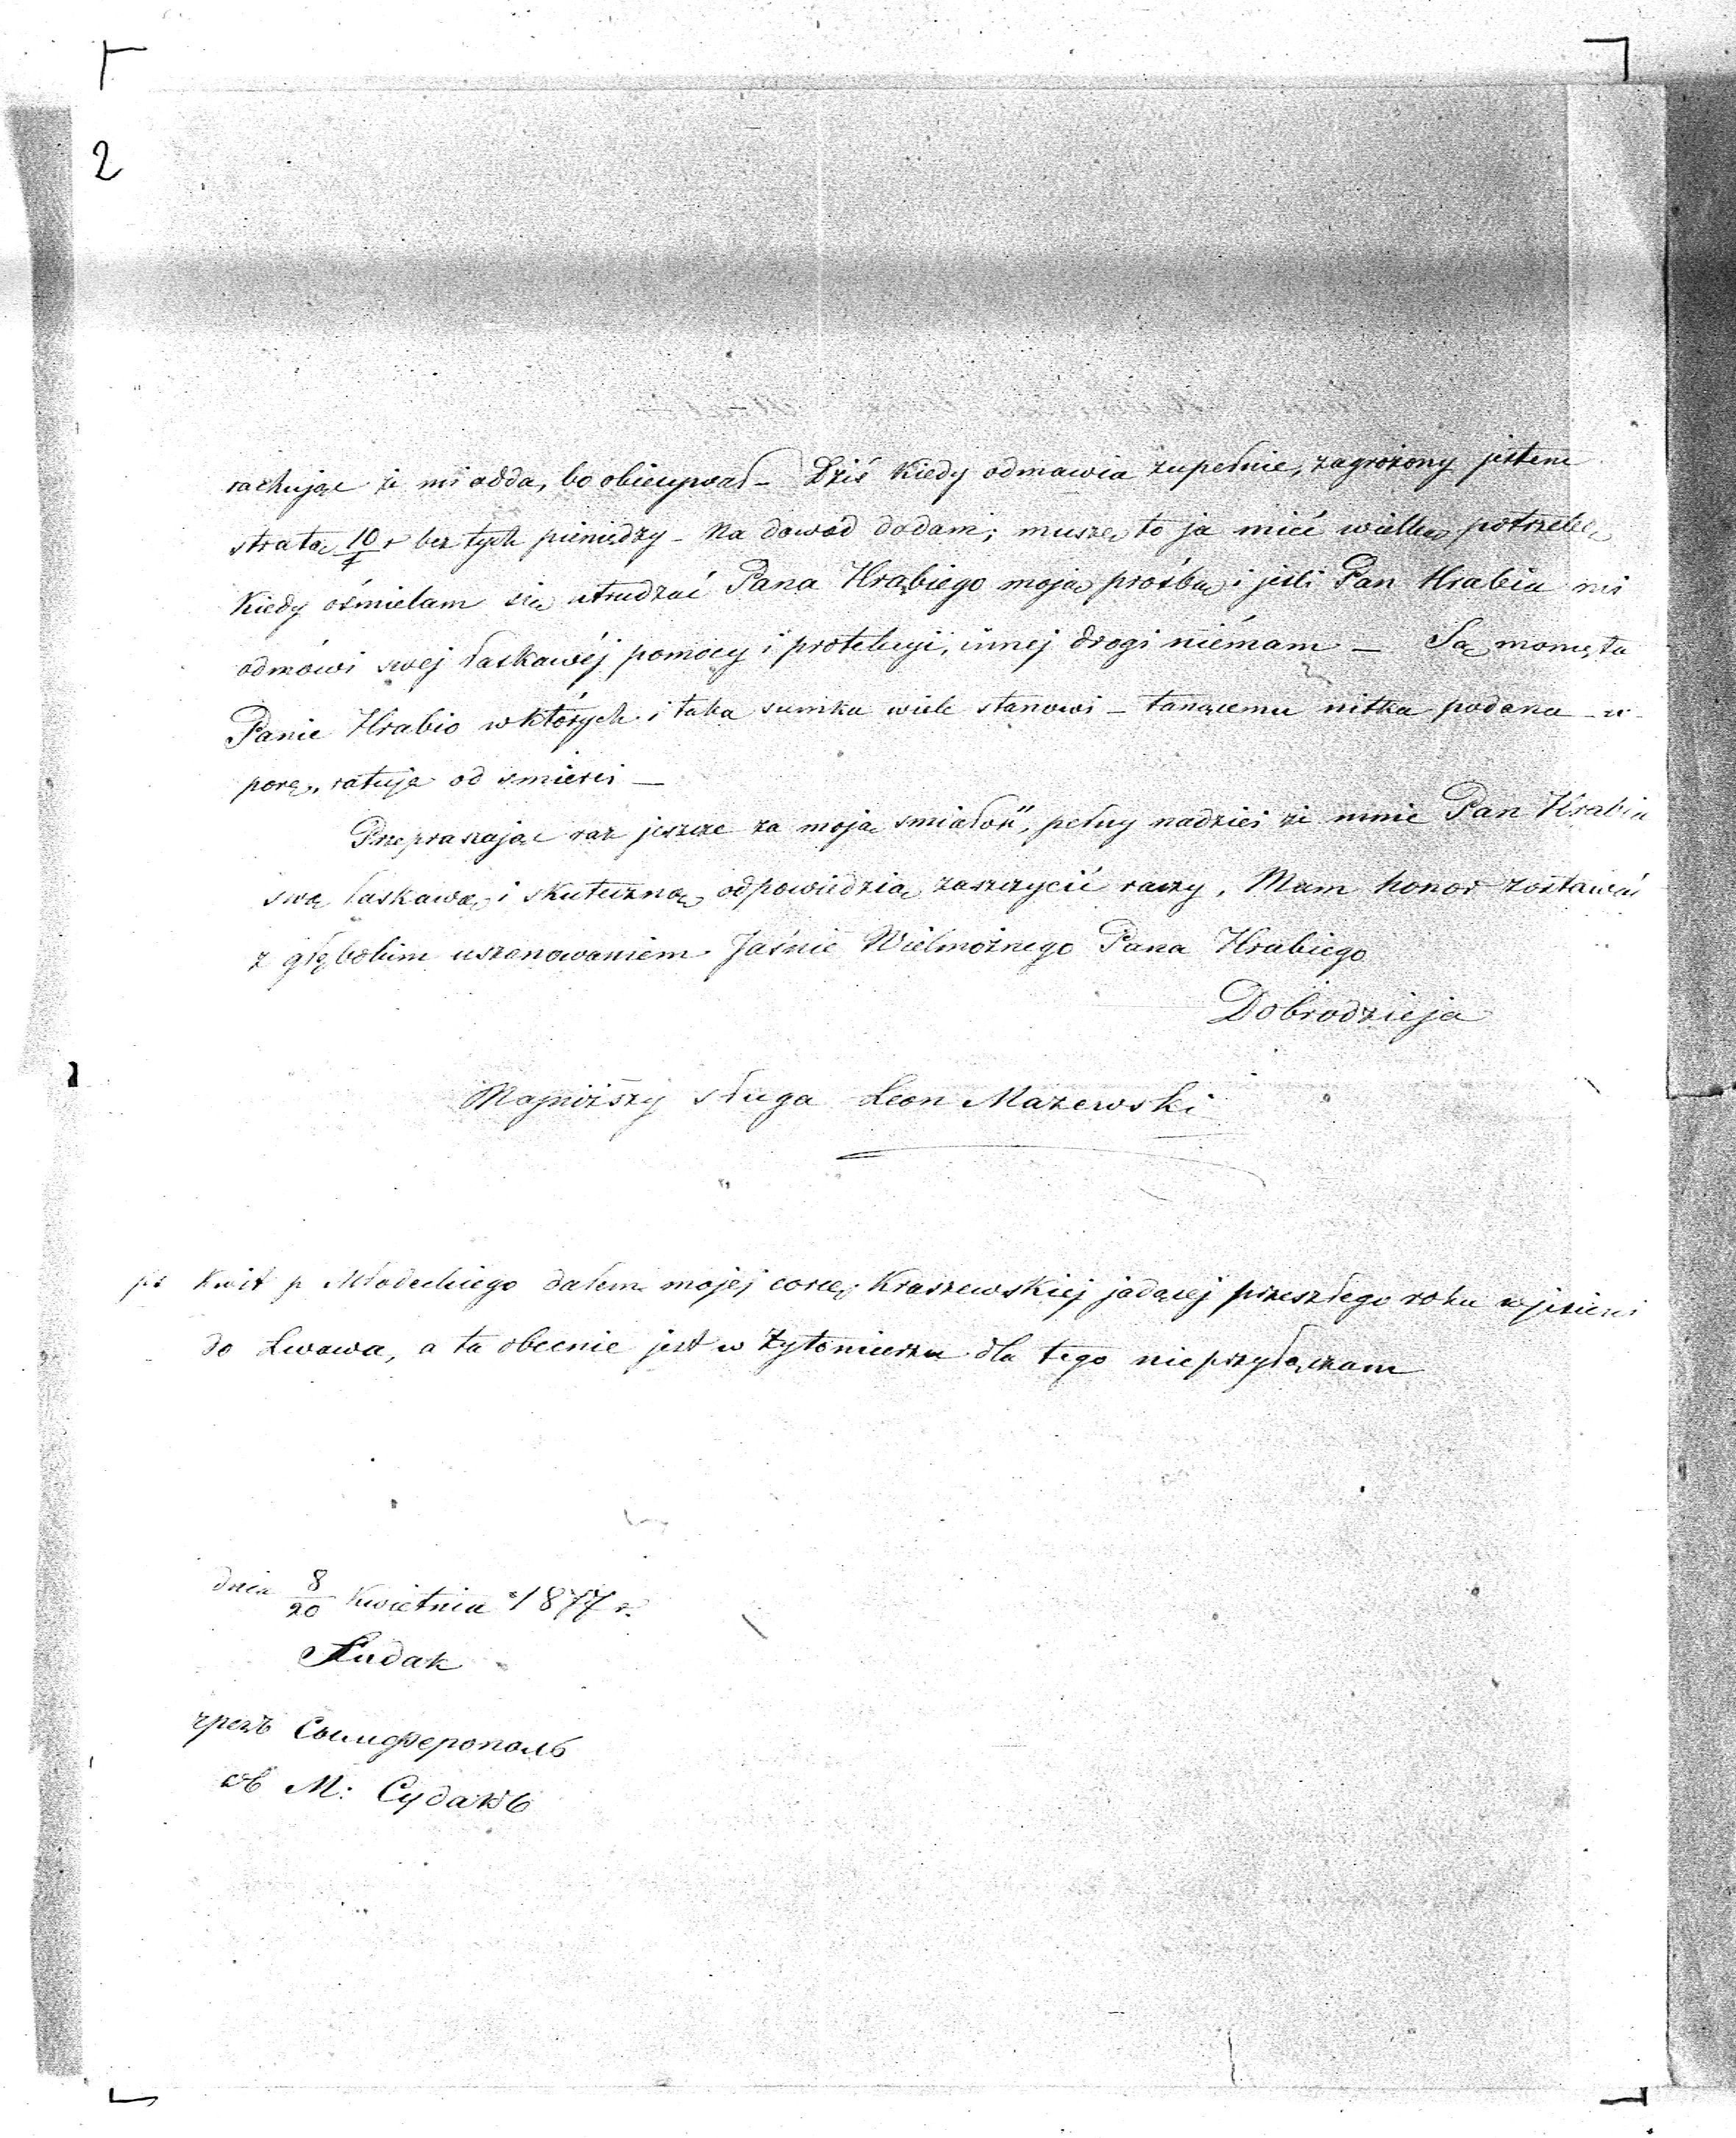 2
rachując że mi odda, bo obiecywał – Dziś kiedy odmawia zupełnie, zagrożony jestem
stratą 10 r bez tych pieniędzy – Na dowód dodam; muszę to ja mieć wielką potrzebę
Kiedy ośmielam się utrudzać Pana Hrabiego moją prośbą i jeśli Pan Hrabia mi
odmówi swej łaskawéj pomocy i protekcyi, innej drogi niémam – Są momęta
Panie Hrabio w których i taka sumka wiele stanowi – tonącemu nitka podana w
porę, ratuje od smierci –
Przepraszając raz jeszcze za moją smiałość, pełny nadziei że mnie Pan Hrabia
swą łaskawą i skuteczną odpowiedzią zaszczycić raczy, Mam honor zostawać
z głębokim uszanowaniem Jaśnie Wielmożnego Pana Hrabiego
Dobrodzieja
Najniższy sługa Leon Mazewski
ps Kwit p Młodeckiego dałem mojej corce Kraszewskiej jadącej przeszłego roku w jesieni
do Lwowa, a ta obecnie jest w Żytomierzu dla tego nieprzyłączam
dnia 8/20 Kwietnia 1877 r.
Sudak
чрезъ Симферополь
въ М: Судакъ